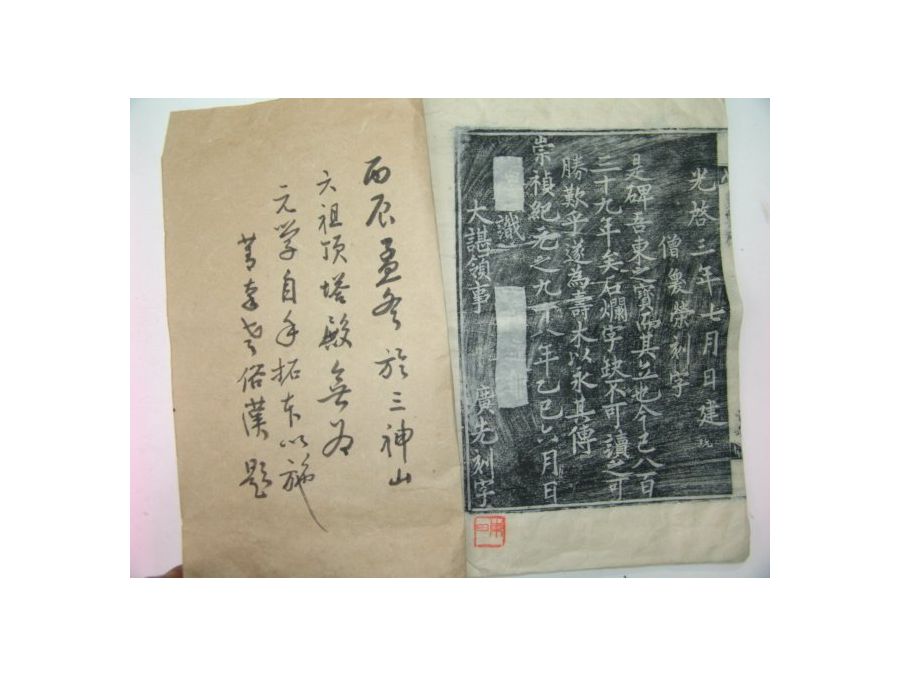 光啓三年七月日建
僧奐榮刻字
是碑吾東之寶而其立也今已八百
三十九年矣石爛字缺不可讀之可
勝歎乎遂為壽木以永其傳
崇禎紀元之九十八年乙巳六月日
識
大諶領事 廣先刻字
丙辰孟冬於三神山
六祖頂塔殿無為
元学自手拓本以施
俗漢題